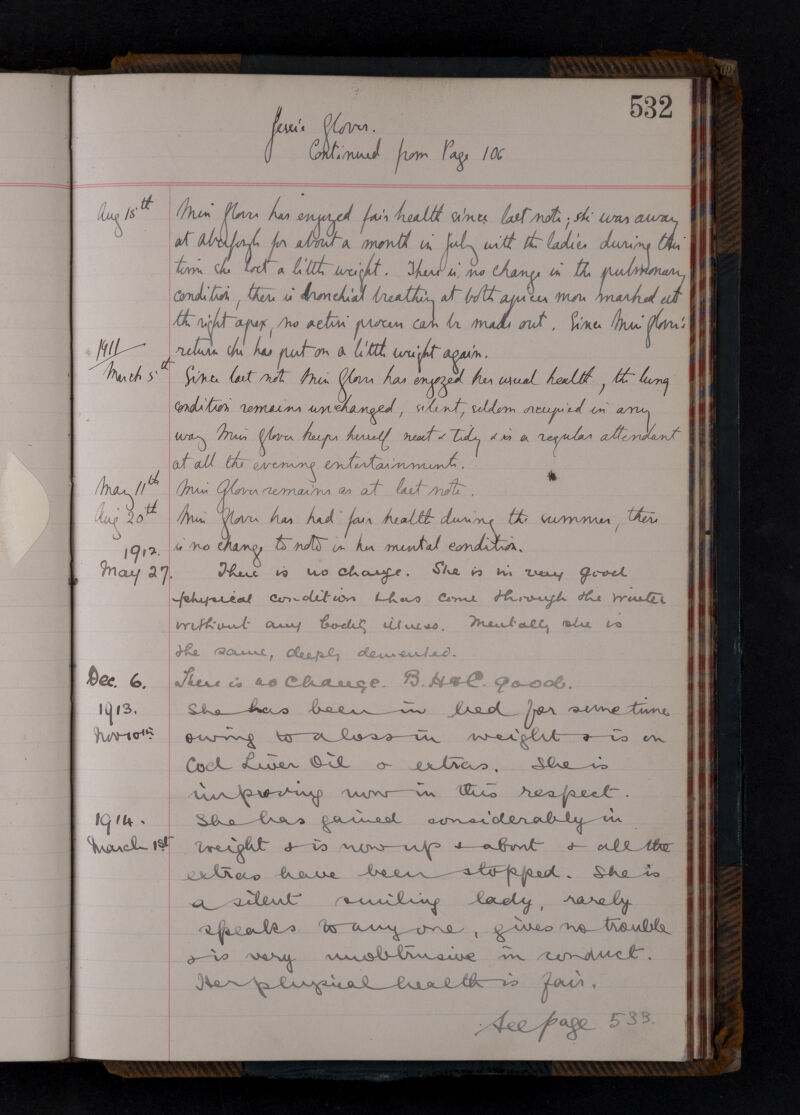 532
Jessie Glover.
Continued from Page 106
Aug 15th Miss Glover has enjoyed fair health since last note; she was away
at for about a month in July with the ladies during this
time she lost a little weight. There is no change in the pulmonary
condition, there is bronchial breathing at both apices more marked at
the right apex, no active process can be made out. Since Miss Glover's
1911 return she has put on a little weight again.
March 5th Since last note Miss Glover has enjoyed her usual health, the lung
condition remains unchanged, silent, seldom occupied in any
way Miss Glover keeps herself neat & tidy & is a regular attendant
at all the evening entertainments.
May 11th Miss Glover remains as at last note.
Aug 20th Miss Glover has had fair health during the summer, there
1912. is no change to note in her mental condition.
May 27. There is no change. She is in very good
physical condition & has come through the winter
without any bodily illness. Mentally she is
the same, deeply demented.
Dec. 6. There is no change. B.H&C. good.
1913. She has been in bed for some time
Nov 10th owing to a loss in weight & is on
Cod Liver Oil & extras. She is
improving now in this respect.
1914. She has gained considerably in
March 1st weight & is now up & about & all the
extras have been stopped. She is
a silent smiling lady, rarely
speaks to any one, gives no trouble
& is very unobtrusive in conduct.
Her physical health is fair.
See page 533.